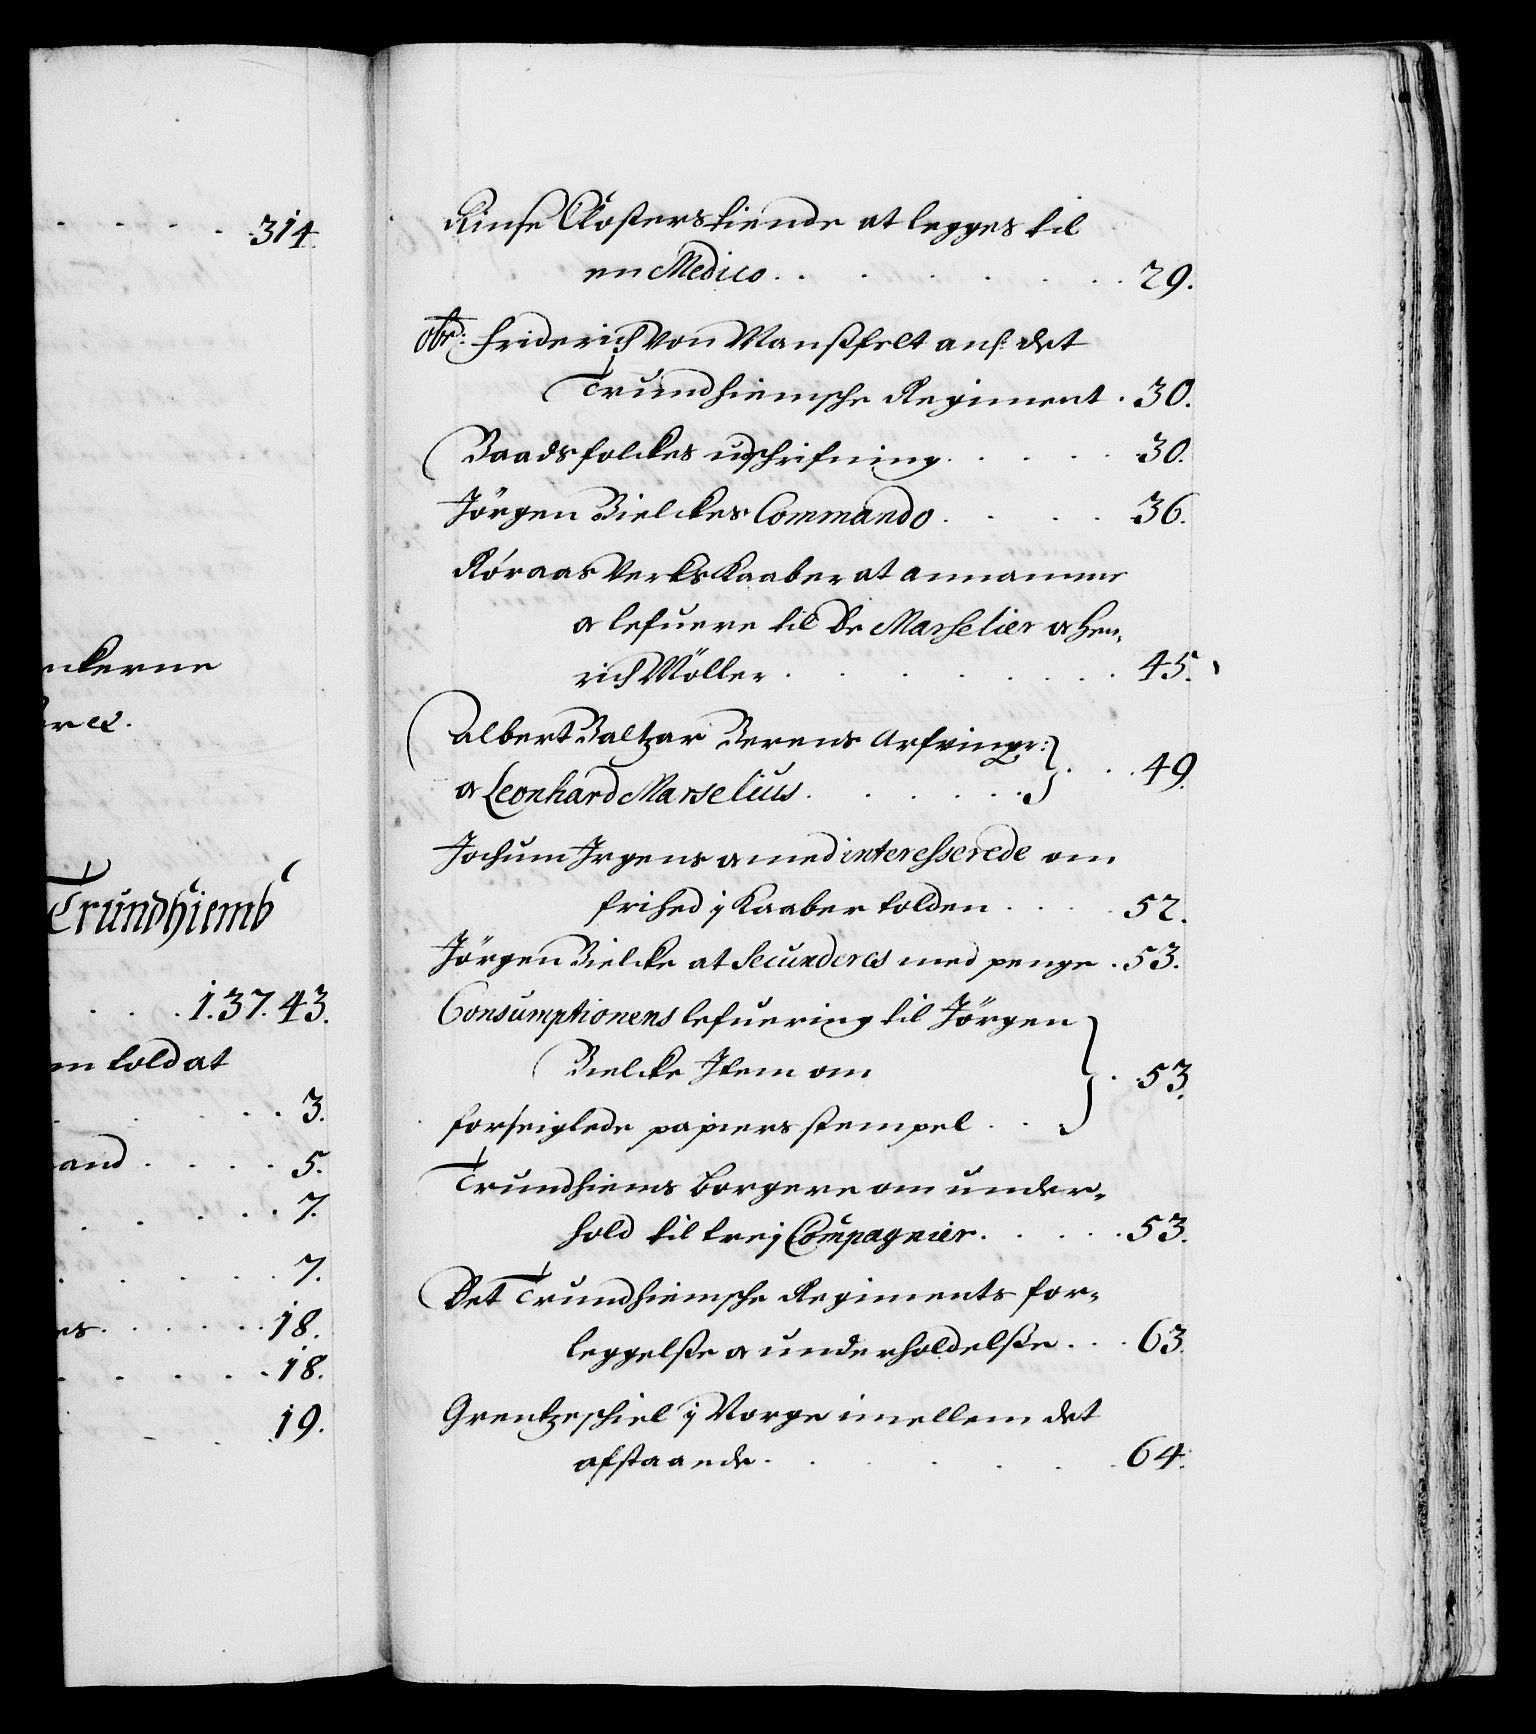 314.
nckerne
er ec.
Trundhiemb
1. 37. 43.
en told at
3.
and . . . . 5.
7.
7.
es . . . . . 18.
18.
19.
Rinse Closters tiende at legges til
en Medico . . . . . . . 29.
Obr: Friderich Von Manssfelt anf: det
Trundhiemsche Regiment . 30.
Baadsfolckes udschrifning . . . . . 30.
Jörgen Bielckes Commando . . . . 36.
Röraas Verks Kaaber at annamme
a lefuere til De Marselier a Hen-
rich Möller . . . . . . . . 45.
Albert Baltzar Berens Arfvinger:
a Leonhard Marselius . . . . . . } . . 49.
Jochum Irgens a med interesserede om
frihed i Kaaber tolden . . . . 52.
Jörgen Bielcke at secunderes med penge . 53.
Consumptionens lefuering til Jörgen
Bielcke Item om } . . 53.
forseiglede papiers stempel . . .
Trundhiems Borgere om under-
hold til trej Compagnier . . . . . 53.
Det Trundhiemsche Regiments for-
leggelsse a underholdelsse . . . 63.
Grentzeschiel i Norge imellem det
afstaaende . . . . . . . 64.